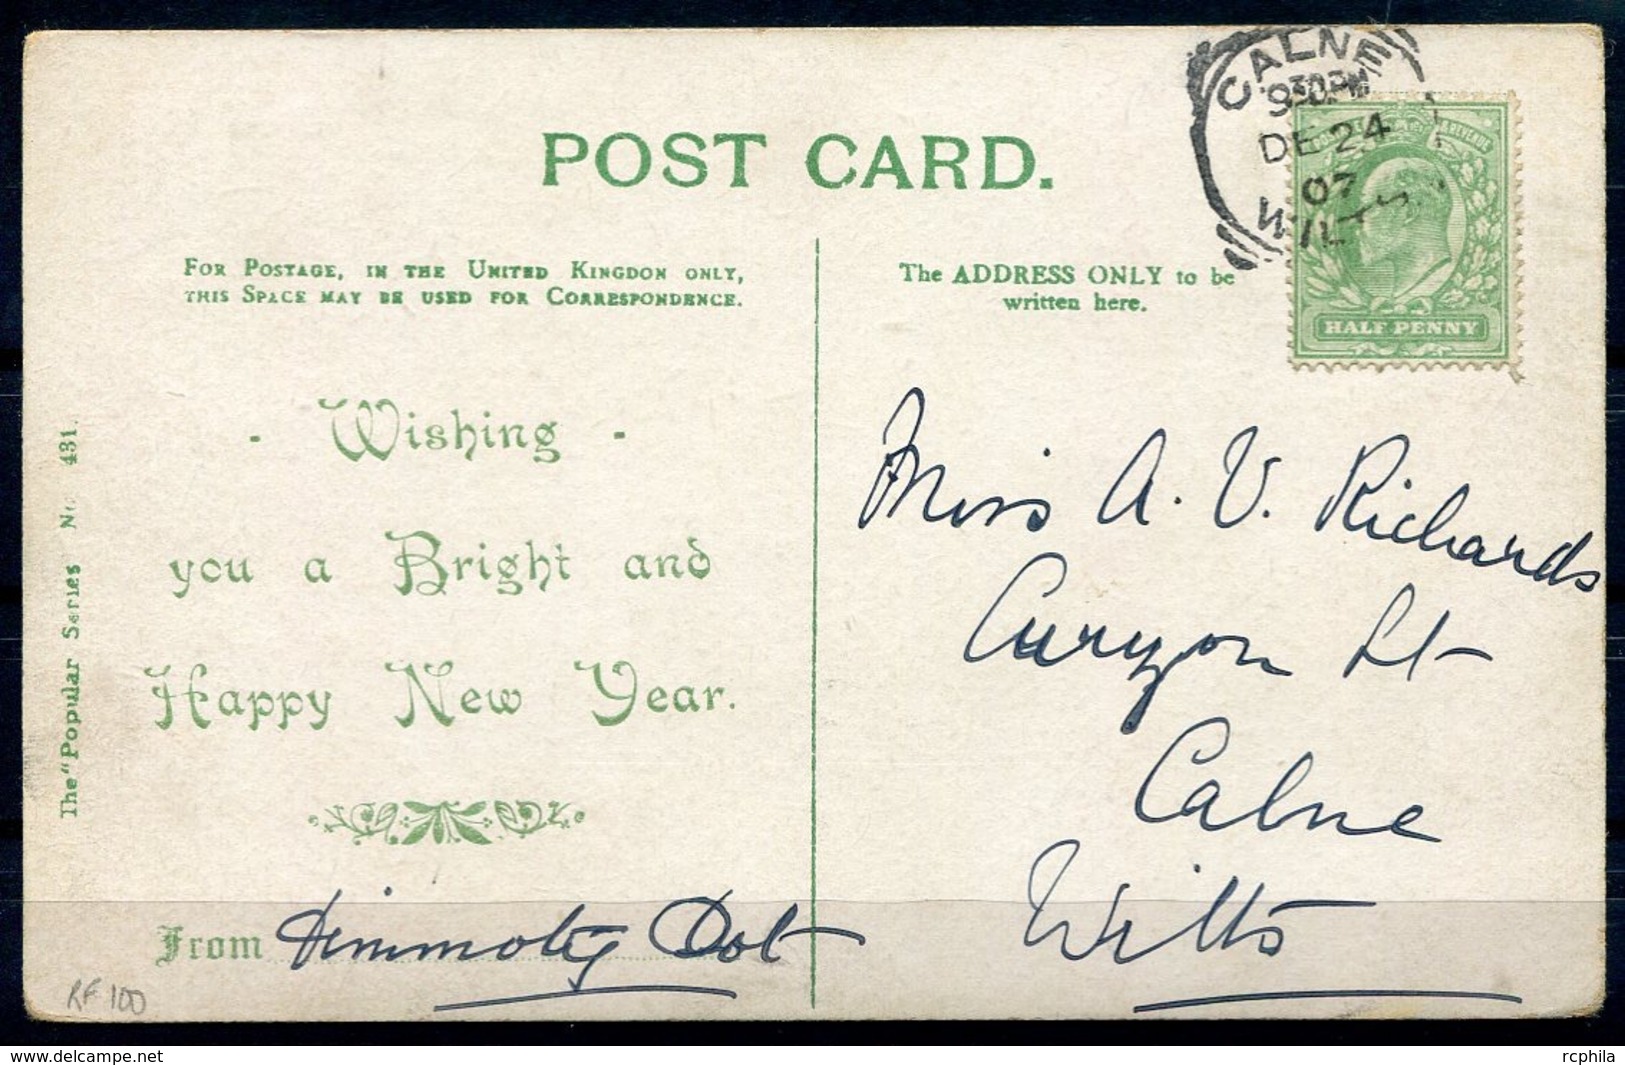 CALNE
930PM
DE 24
07
WILTS
POST CARD.
HALF PENNY
FOR POSTAGE, IN THE UNITED KINGDON ONLY,
THIS SPACE MAY BE USED FOR CORRESPONDENCE.
The ADDRESS ONLY to be
written here.
- Wishing -
you a Bright and
Happy New Year.
From
Dot
The "Popular Series No. 431.
Miss A. V. Richards
Curzon St
Calne
Wilts
RF 100
rcphila